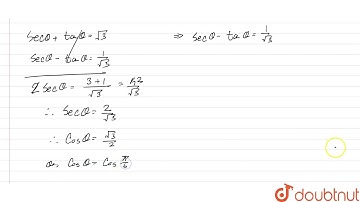 secθ + tanθ = √3
⇒ secθ - tanθ = 1/√3
secθ - tanθ = 1/√3
2 secθ = (3+1)/√3 =
∴ secθ = 2/√3
∴ cosθ = √3/2
cosθ = cos π/6
doubtnut